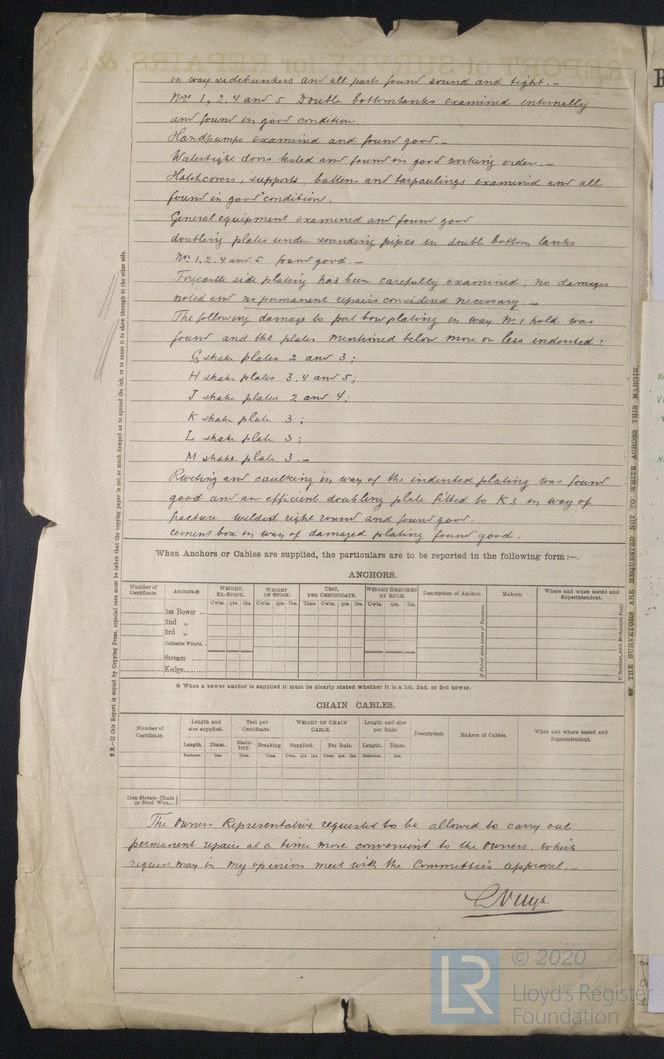 in way sidebunkers and all parts found sound and tight. —
Nos 1, 2, 4 and 5 Double bottomtanks examined internally
and found in good condition
Handpumps examined and found good. —
Watertight doors tested and found in good working order. —
Hatchcovers, supports, battens and tarpaulings examined and all
found in good condition.
General equipment examined and found good
doubling plates under sounding pipes in double bottom tanks
Nos 1, 2, 4 and 5 found good. —
Forecastle side plating has been carefully examined, no damages
noted and no permanent repairs considered necessary. —
The following damage to port bow plating in way No 1 hold was
found and the plates mentioned below more or less indented:
G strake plates 2 and 3;
H strake plates 3, 4 and 5;
J strake plates 2 and 4;
K strake plate 3;
L strake plate 3;
M strake plate 3. —
Riveting and caulking in way of the indented plating was found
good and an efficient doubling plate fitted to K3 in way of
fracture welded right round and found good.
Cement box in way of damaged plating found good.
When Anchors or Cables are supplied, the particulars are to be reported in the following form :—
ANCHORS.
Number of Certificate. Anchors.* WEIGHT, EX-STOCK. WEIGHT OF STOCK. TEST, PER CERTIFICATE. WEIGHT REQUIRED BY RULE. Description of Anchor. Makers. Where and when tested and Superintendent.
Cwts. qrs. lbs. Cwts. qrs. lbs. Tons Cwts. qrs. lbs. Cwts. qrs. lbs.
1st Bower ...
2nd „
3rd „
Collective Weight.
Stream
Kedge
If Patent state name of Patentee.
* When a bower anchor is supplied it must be clearly stated whether it is a 1st, 2nd, or 3rd bower.
CHAIN CABLES.
Number of Certificate. Length and size supplied. Test per Certificate. WEIGHT OF CHAIN CABLE. Length and size per Rule. Description. Makers of Cables. When and where tested and Superintendent.
Length. Diam. Statutory. Breaking. Supplied. Per Rule. Length. Diam.
Fathoms. Ins. Tons. Tons. Cwts. qrs. lbs. Cwts. qrs. lbs. Fathoms. Ins.
Iron Stream Chain
or Steel Wire
The Owners Representative requested to be allowed to carry out
permanent repairs at a time more convenient to the Owners, which
request may in my opinion meet with the Committee's approval. —
N.B.—If this Report is copied by Copying Press, especial care must be taken that the copying paper is not so much damped as to spread the ink, or to cause it to show through to the other side.
THE SURVEYORS ARE REQUESTED NOT TO WRITE ACROSS THIS MARGIN.
LR © 2020
Lloyd's Register
Foundation